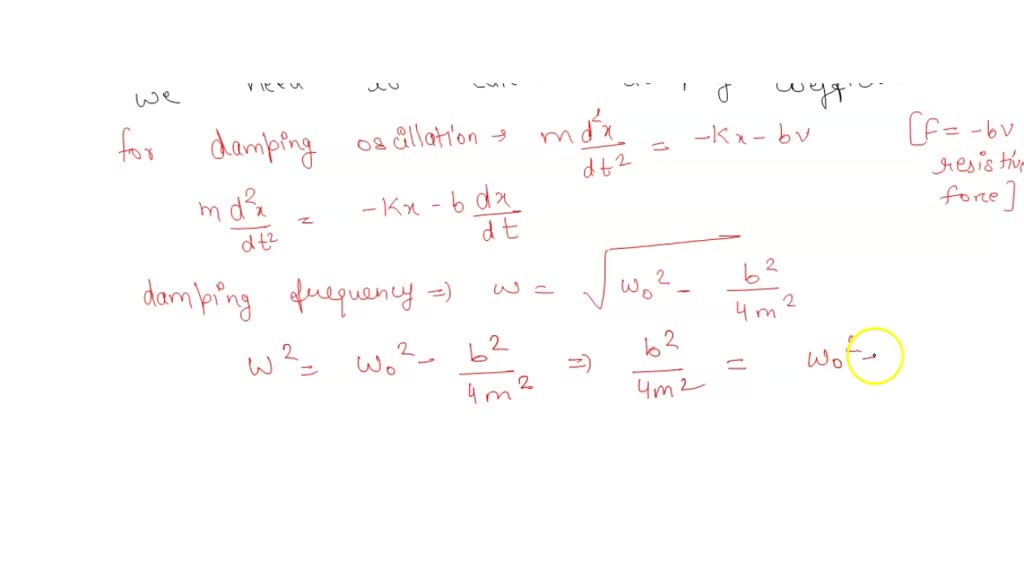 we need
for damping oscillation → m d²x/dt² = -Kx - bv [F = -bv
resistive
force]
m d²x/dt² = -Kx - b dx/dt
damping frequency => w = √(w₀² - b²/4m²)
w² = w₀² - b²/4m² => b²/4m² = w₀² -